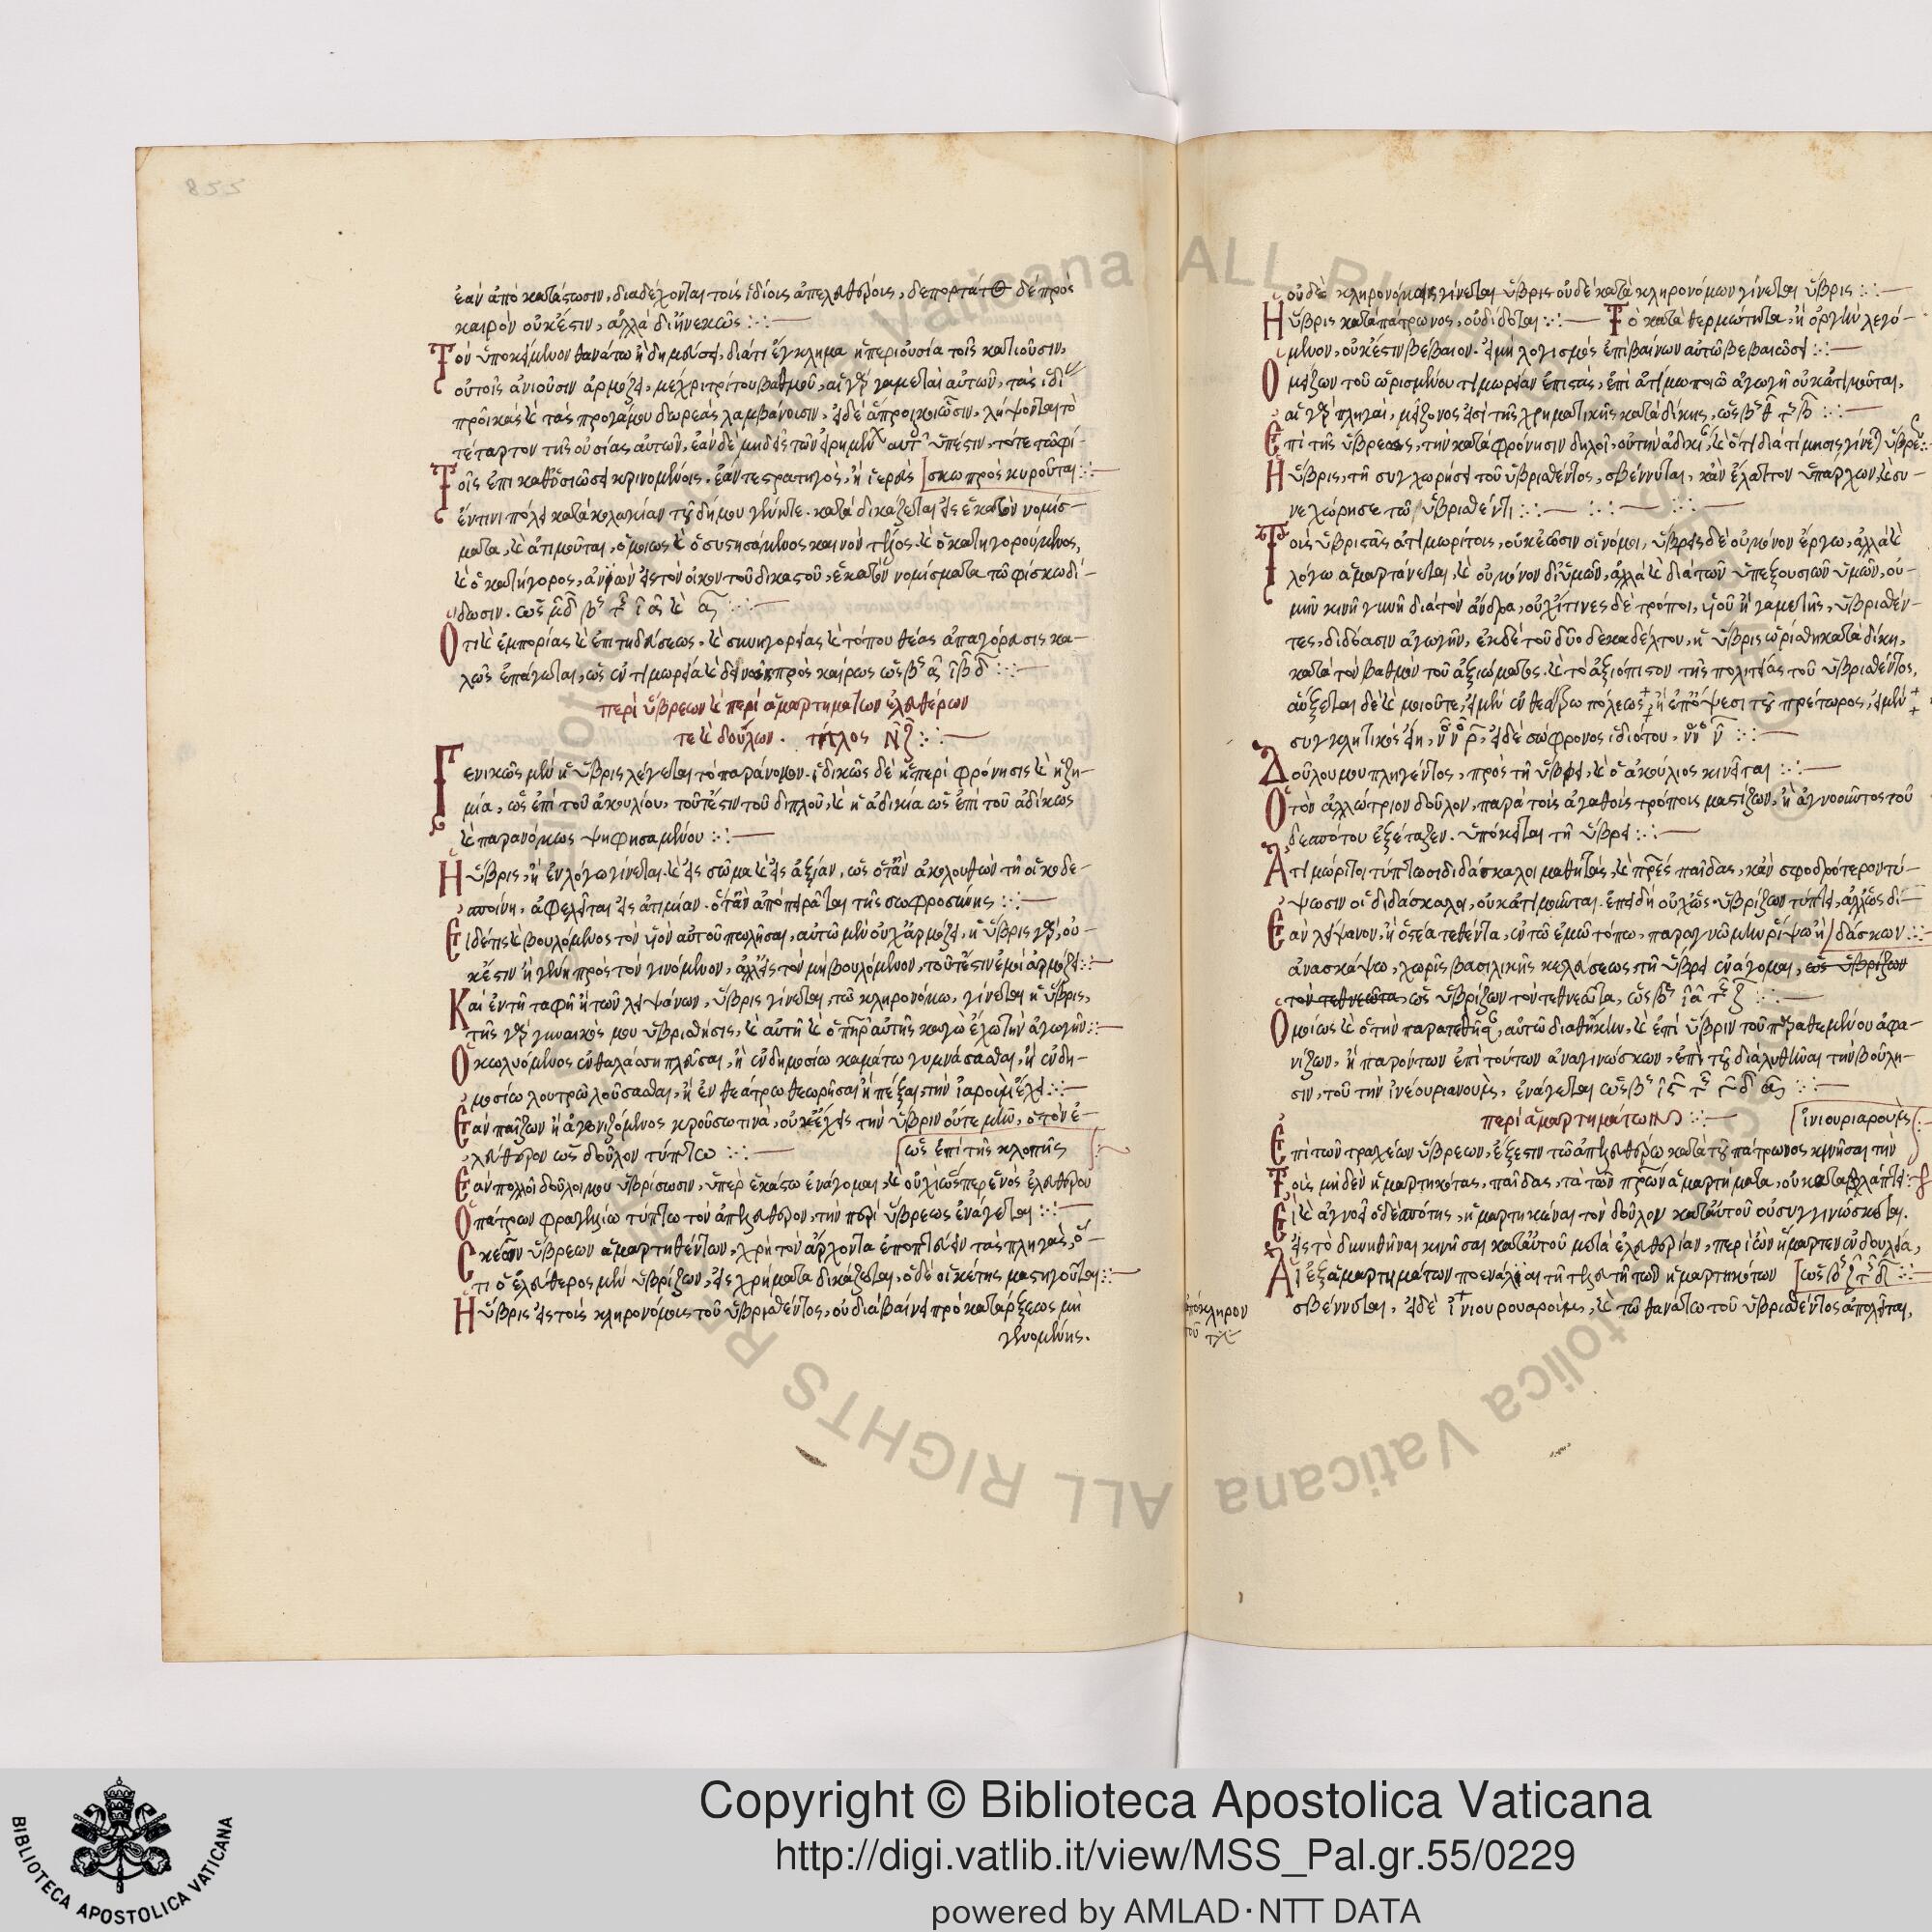 855
ἐὰν ἀπὸ κατάστωσιν, διαδέχονται τοὺς ἰδίους ἀπελευθέρους, δὲ πρὸς
καιρὸν οὐκ ἔστιν, ἀλλὰ διηνεκῶς
Τὸν ὑποκείμενον θανάτω ἢ δημεύσει, διάτι ἔγκλημα ἡ περιουσία τοῖς κατιοῦσιν,
οὐ τοῖς ἀνιοῦσιν ἁρμόζει, μέχρι τρίτου βαθμοῦ, αἱ γὰρ γαμεταὶ αὐτῶν, τὰς ἰδί
προῖκας καὶ τὰς προγάμου δωρεὰς λαμβάνουσιν, εἰ δὲ ἄπροικοι ὦσιν, λήψονται τὸ
τέταρτον τῆς οὐσίας αὐτῶν, ἐὰν δὲ μηδεὶς τῶν εἰρημένων αὐτ ὕπεστιν, τότε τῶ φί-
Τοῖς ἐπὶ καθοσιώσει κρινομένοις. ἐάν τε στρατηγὸς, ἢ ἱερεὺς [σκω προσκυροῦται
ἔν τινι πόλει κατὰ κολακίαν τοῦ δήμου γένηται. καταδικάζεται εἰς ἑκατὸν νομίσ-
ματα, καὶ ἀτιμοῦται, ὁμοίως καὶ ὁ συστησάμενος καινὸν τέλος. καὶ ὁ κατηγορούμενος,
καὶ ὁ κατήγορος, ἀνιὼν εἰς τὸν οἶκον τοῦ δικαστοῦ, ἑκατὸν νομίσματα τῶ φίσκω δί-
δωσιν.
Ὅτι καὶ ἐμπορίας καὶ ἐπιτηδεύσεως. καὶ συνηγορίας καὶ τόπου θέας ἀπαγόρευσις κα-
λῶς ἐπάγεται, ὡς ἐν τιμωρία καὶ πρὸς καίρως
περὶ ὕβρεων καὶ περὶ ἁμαρτημάτων ἐλευθέρων
τε καὶ δούλων. τίτλος ΝΖ
Γενικῶς μὲν ἡ ὕβρις λέγεται τὸ παράνομον. ἰδικῶς δὲ ἡ περιφρόνησις καὶ ἡ ζη-
μία, ὡς ἐπὶ τοῦ ἀκουλίου, τουτέστιν τοῦ διπλοῦ, καὶ ἡ ἀδικία ὡς ἐπὶ τοῦ ἀδίκως
καὶ παρανόμως ψηφησαμένου
Ἡ ὕβρις, ἢ ἐν λόγω γίνεται. καὶ εἰς σῶμα καὶ εἰς ἀξίαν, ὡς ὅταν ἀκολουθῶν τῆ οἰκοδε-
σποίνη, ἀφελεῖται εἰς ἀτιμίαν. ὅταν ἀποπειρᾶται τῆς σωφροσύνης
Εἰ δέ τις καὶ βουλόμενος τὸν υἱὸν αὐτοῦ πωλῆσαι, αὐτῶ μὲν οὐχ ἁρμόζει, ἡ ὕβρις γὰρ, οὐ-
κ ἔστιν ἢ γένη πρὸς τὸν γινόμενον, ἀλλ' εἰς τὸν μὴ βουλόμενον, τουτέστιν ἐμοὶ ἁρμόζει
Καὶ ἐν τῆ ταφῆ ἢ τῶν λειψάνων, ὕβρις γίνεται, τῶ κληρονόμω, γίνεται ἡ ὕβρις,
τῆς γὰρ γυναικός μου ὑβρισθήσις, καὶ αὐτὴ καὶ ὁ πατὴρ αὐτῆς κἀγὼ ἔχω τὴν ἀγωγήν
Ὁ κωλυόμενος ἐν θαλάσση πλεῦσαι, ἢ ἐν δημοσίω καμάτω γυμνάσασθαι, ἢ ἐν δη-
μοσίω λουτρῶ λούσασθαι, ἢ ἐν θεάτρω θεωρῆσαι ἢ πέξαι, τὴν ἰαρούμ ἔχει
Ἐὰν παίζων ἢ ἀγωνιζόμενος κρούσω τινὰ, οὐκ ἔχεις τὴν ὕβριν οὔτε μὲν, ὁ τὸν ἐ-
λεύθερον ὡς δοῦλον τύπτω [ὡς ἐπὶ τῆς κλοπῆς
Ἐὰν πολλοὶ δοῦλοί μου ὑβρίσωσιν, ὑπὲρ ἑκάστω ἐνάγομαι, καὶ οὐχὶ ὥσπερ ἑνὸς ἐλευθέρου
Ὁ πάτρων φραγελλίω τύπτω τὸν ἀπελεύθερον, τὴν περὶ ὕβρεως ἐνάγεται
ὕβρεων ἁμαρτηθέντων, χρὴ τὸν ἄρχοντα ἐποπτεύειν τὰς πληγὰς, ὅ-
τι ὁ ἐλεύθερος μὲν ὑβρίζων, εἰς χρήματα δικάζεται, ὁ δὲ οἰκέτης μαστιγοῦται
Ἡ ὕβρις εἰς τοὺς κληρονόμους τοῦ ὑβρισθέντος, οὐ διαβαίνει προκατάρξεως μὴ
γενομένης.
οὐδὲ κληρονόμοις γίνεται ὕβρις οὐδὲ κατὰ κληρονόμων γίνεται ὕβρις
Ἡ ὕβρις κατὰ πάτρωνος, οὐ δίδοται Τὸ κατὰ θερμότητα, ἢ ὀργὴν λεγό-
μενον, οὐκ ἔστιν βέβαιον. εἰ μὴ λογισμὸς ἐπιβαίνων αὐτῶ βεβαιώσει
Ὁ μείζων τοῦ ὡρισμένου τιμωρίαν ἐπιστὰς, ἐπὶ ἀτιμωποιῶ ἀγωγῆ οὐκ ἀτιμοῦται,
αἱ γὰρ πληγαὶ, μείζονος εἰσὶ τῆς χρηματικῆς καταδίκης,
Ἐπὶ τῆς ὕβρεως, τὴν καταφρόνησιν δηλοῖ, οὐ τὴν ἀδικί, καὶ ὅτι διατίμησις γίνεται ὕβρε
Ἡ ὕβρις, τῆ συγχωρήσει τοῦ ὑβρισθέντος, σβέννυται, κἂν ἐλάττον ὑπάρχων, καὶ συ-
νεχώρησε τῶ ὑβρισθέντι
Τοὺς ὑβριστὰς ἀτιμωρίτους, οὐκ ἐῶσιν οἱ νόμοι, ὕβρεις δὲ οὐ μόνον ἔργω, ἀλλὰ καὶ
λόγω ἁμαρτάνεται, καὶ οὐ μόνον δι' ὑμῶν, ἀλλὰ καὶ διὰ τῶν ὑπεξουσίων ὑμῶν, οὐ-
μὴν κινῆ γυνὴ διὰ τὸν ἄνδρα, οὐχί τινες δὲ τρόποι, υἱοῦ ἢ γαμετῆς, ὑβρισθέν-
τες, διδόασιν ἀγωγὴν, ἐκ δὲ τοῦ δυοδεκαδέλτου, ἡ ὕβρις ὡρίσθη καταδίκη,
κατὰ τὸν βαθμὸν τοῦ ἀξιώματος. καὶ τὸ ἀξιόπιστον τῆς πολιτείας τοῦ ὑβρισθέντος,
αὔξεται δὲ καὶ μειοῦται, εἰ μὲν ἐν θεάτρω πόλεως, ἢ ἐπόψεσι τοῦ πρέτωρος, εἰ μὲν
συγκλητικὸς εἴη, εἰ δὲ σώφρονος ἰδιότου,
Δούλου μου πληγέντος, πρὸς τῆ ὕβρει, καὶ ὁ ἀκούλιος κινεῖται
Ὁ τὸν ἀλλώτριον δοῦλον, παρὰ τοὺς ἀγαθοὺς τρόπους μαστίζων, ἢ ἀγνοοῦντος τοῦ
δεσπότου ἐξέταζεν. ὑπόκειται τῆ ὕβρει
Ἀτιμώριτοι τύπτωσι διδάσκαλοι μαθητὰς, καὶ πατέρες παῖδας, κἂν σφοδρότερον τύ-
ψωσιν οἱ διδάσκαλοι, οὐκ ἀτιμοῦται. ἐπειδὴ οὐχ ὡς ὑβρίζων τύπτει, ἀλλ' ὡς δι-
Ἐὰν λείψανον, ἢ ὀστέα τεθέντα, ἐν τῶ ἐμῶ τόπω, παραγνῶμεν ῥίψω ἢ [δάσκων
ἀνασκάψω, χωρὶς βασιλικῆς κελεύσεως, τῆ ὕβρει ἐνάγομαι, ὡς ὑβρίζων
τὸν τεθνεῶτα, ὡς ὑβρίζων τὸν τεθνεῶτα,
Ὁμοίως καὶ ὁ τὴν παρατεθῆσ, αὐτῶ διαθήκην, καὶ ἐπὶ ὕβριν τοῦ παραθεμένου ἀφα-
νίζων, ἢ παρόντων ἐπὶ τούτων ἀναγινώσκων, ἐπὶ τοῦ διαλυθῆναι τὴν βούλη-
σιν, τοῦ τὴν ἰνέουριανουμς, ἐνάγεται
περὶ ἁμαρτημάτων [ἰνιουριαρουμς
Ἐπὶ τῶν τραχέων ὕβρεων, ἔξεστιν τῶ ἀπελευθέρω κατὰ τοῦ πάτρωνος κινῆσαι τὴν
Τοὺς μηδὲν ἡμαρτηκότας, παῖδας, τὰ τῶν πατέρων ἁμαρτήματα, οὐ καταβλάπτει
Εἰ καὶ ἀγνοεῖ ὁ δεσπότης, ἡμαρτηκέναι τὸν δοῦλον κατ' αὐτοῦ οὐ συγγινώσκεται.
εἰς τὸ δυνηθῆναι κινῆσαι κατ' αὐτοῦ μετὰ ἐλευθερίαν, περὶ ὧν ἥμαρτεν ἐν δουλεία,
Αἱ ἐξ ἁμαρτημάτων ποεναλίαι τῆ τελευτῆ τῶν ἡμαρτηκότων
σβέννυται, εἰ δὲ ἰνιουρουαρούμ, καὶ τῶ θανάτω τοῦ ὑβρισθέντος ἀπολεῖται,
Copyright © Biblioteca Apostolica Vaticana
http://digi.vatlib.it/view/MSS_Pal.gr.55/0229
powered by AMLAD·NTT DATA
BIBLIOTECA APOSTOLICA VATICANA